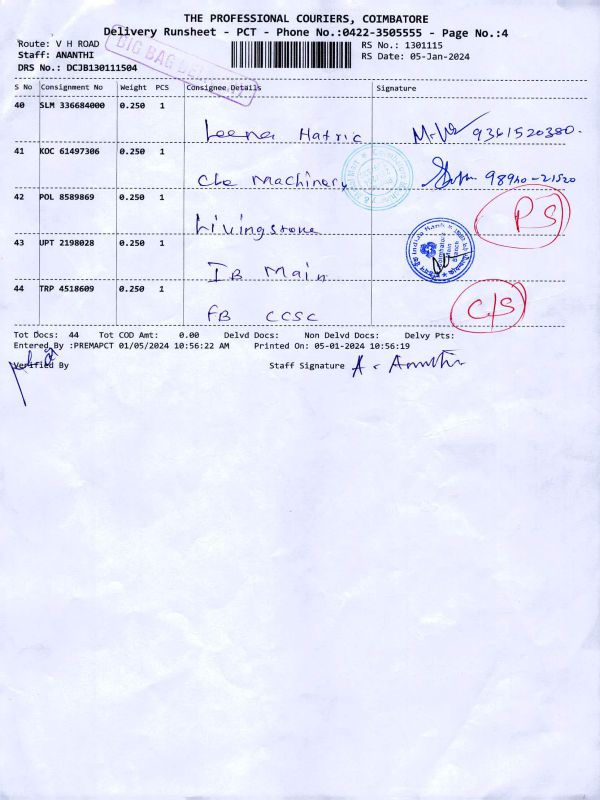 THE PROFESSIONAL COURIERS, COIMBATORE
Delivery Runsheet - PCT - Phone No.:0422-3505555 - Page No.:4
Route: V H ROAD
Staff: ANANTHI
DRS No.: DCJB130111504
RS No.: 1301115
RS Date: 05-Jan-2024
DIG BAG
S No Consignment No Weight PCS Consignee Details Signature
40 SLM 336684000 0.250 1
Leena Hatric 9361520380.
41 KOC 61497306 0.250 1
Cle Machinery
42 POL 8589869 0.250 1
Livingstone PS
43 UPT 2198028 0.250 1
IB Main
Indian Bank
44 TRP 4518609 0.250 1
FB CCSC C/S
Tot Docs: 44 Tot COD Amt: 0.00 Delvd Docs: Non Delvd Docs: Delvy Pts:
Entered By :PREMAPCT 01/05/2024 10:56:22 AM Printed On: 05-01-2024 10:56:19
Verified By Staff Signature A. Ananthi